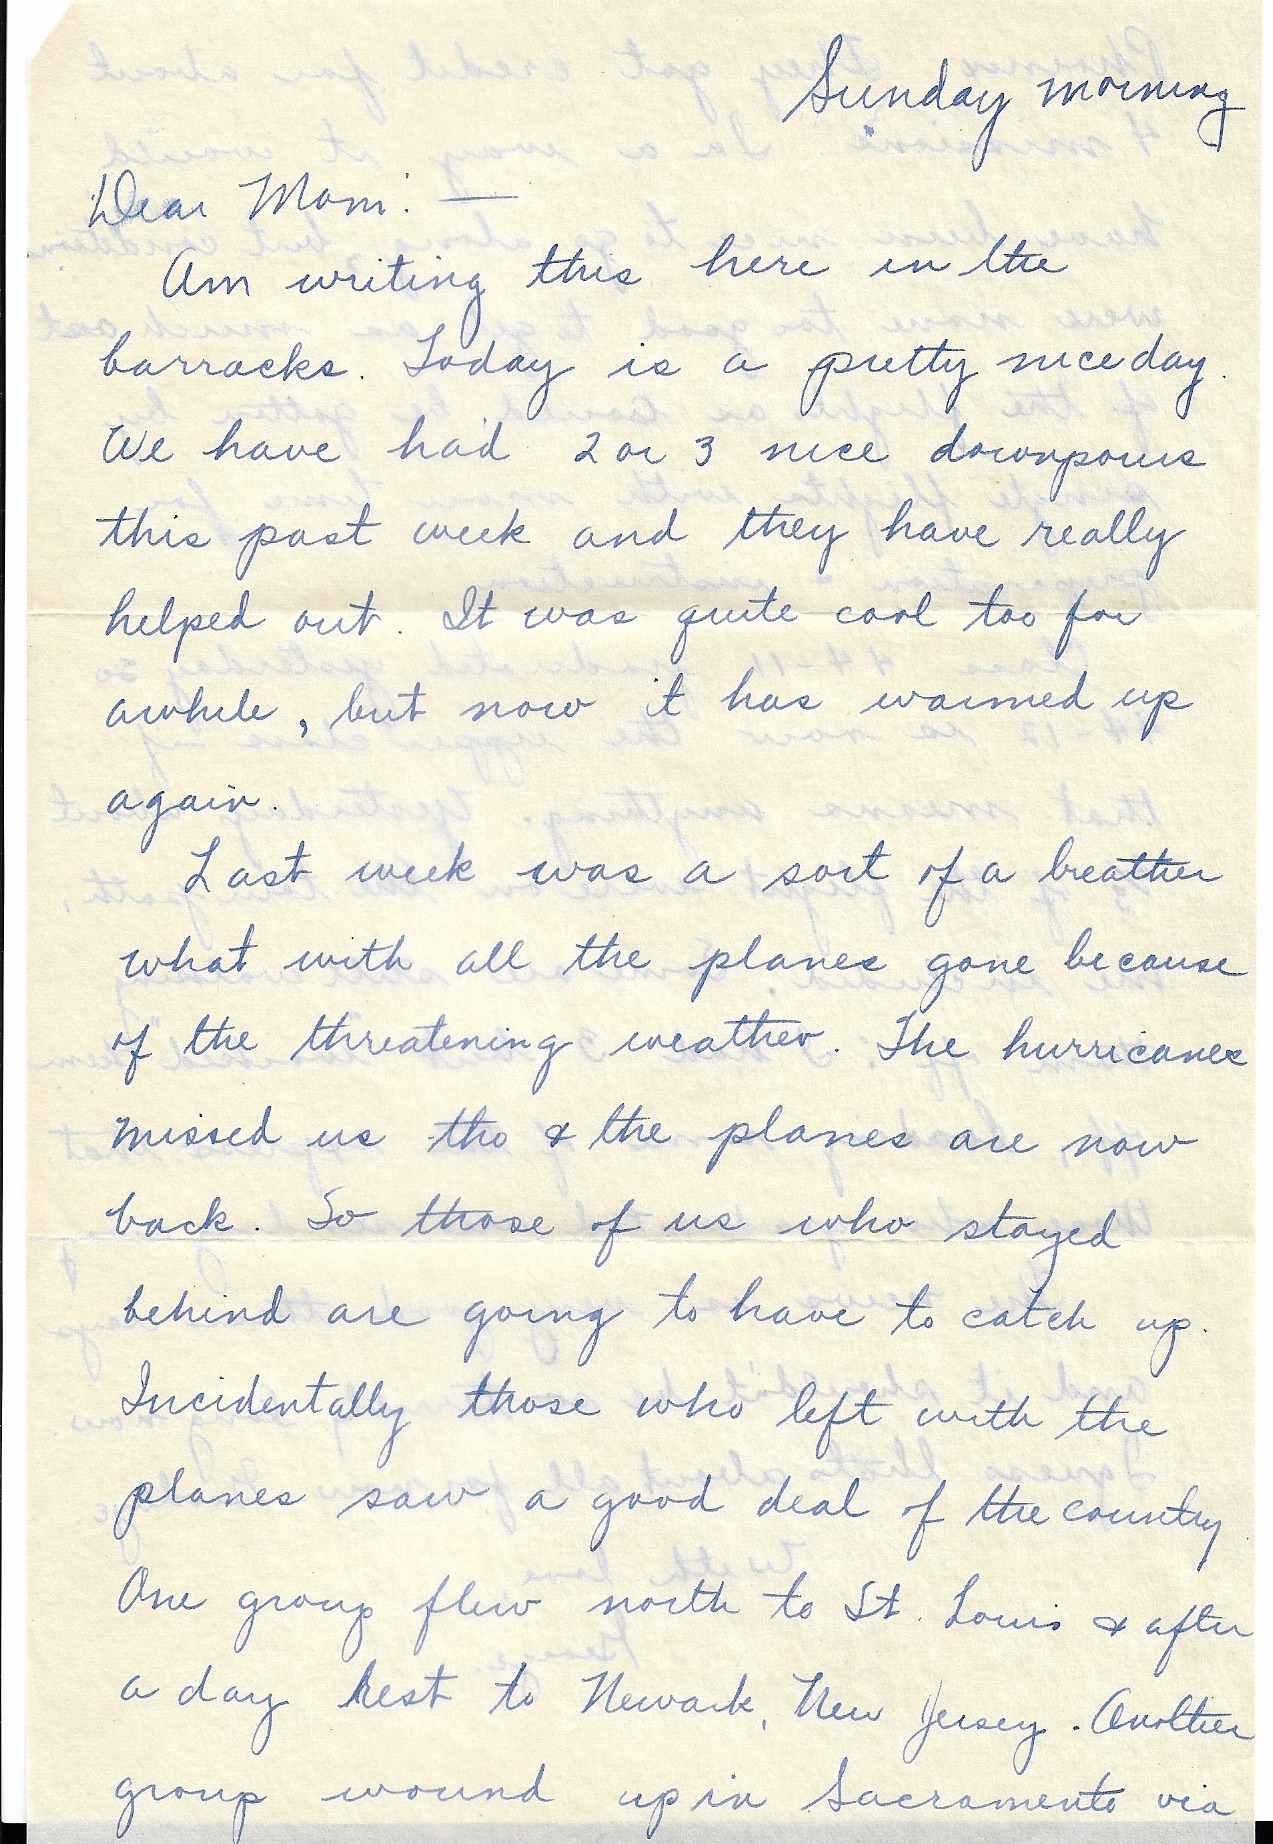 Sunday morning
Dear Mom: —
Am writing this here in the
barracks. Today is a pretty nice day.
We have had 2 or 3 nice downpours
this past week and they have really
helped out. It was quite cool too for
awhile, but now it has warmed up
again.
Last week was a sort of a breather
what with all the planes gone because
of the threatening weather. The hurricanes
missed us tho & the planes are now
back. So those of us who stayed
behind are going to have to catch up.
Incidentally those who left with the
planes saw a good deal of the country
One group flew north to St. Louis & after
a day rest to Newark, New Jersey. Another
group wound up in Sacramento via